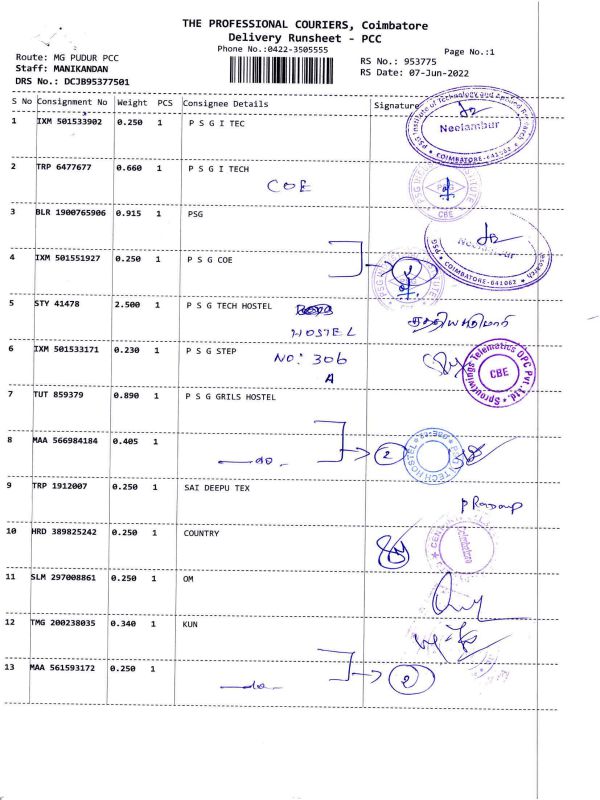 THE PROFESSIONAL COURIERS, Coimbatore
Delivery Runsheet - PCC
Phone No.:0422-3505555
Page No.:1
Route: MG PUDUR PCC
Staff: MANIKANDAN
DRS No.: DCJB95377501
RS No.: 953775
RS Date: 07-Jun-2022
S No Consignment No Weight PCS Consignee Details Signature
1 IXM 501533902 0.250 1 P S G I TEC
PSG Institute of Technology and Applied Research
Neelambur
COIMBATORE-641062
2 TRP 6477677 0.660 1 P S G I TECH
COE
PSG
CBE
3 BLR 1900765906 0.915 1 PSG
COIMBATORE-641062
4 IXM 501551927 0.250 1 P S G COE
5 STY 41478 2.500 1 P S G TECH HOSTEL
HOSTEL
6 IXM 501533171 0.230 1 P S G STEP
NO: 306
A
Sproutwings Telematics OPC Pvt. Ltd.
CBE
7 TUT 859379 0.890 1 P S G GRILS HOSTEL
8 MAA 566984184 0.405 1
-do-
2
TECH HOSTEL
9 TRP 1912007 0.250 1 SAI DEEPU TEX
10 HRD 389825242 0.250 1 COUNTRY
Coimbatore
11 SLM 297008861 0.250 1 OM
12 TMG 200238035 0.340 1 KUN
13 MAA 561593172 0.250 1
-do-
2